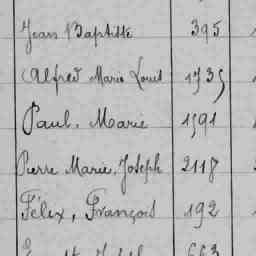 Jean Baptiste 395
Alfred Marie Louis 1735
Paul, Marie 1591
Pierre Marie, Joseph 2118
Félix, François 192
663